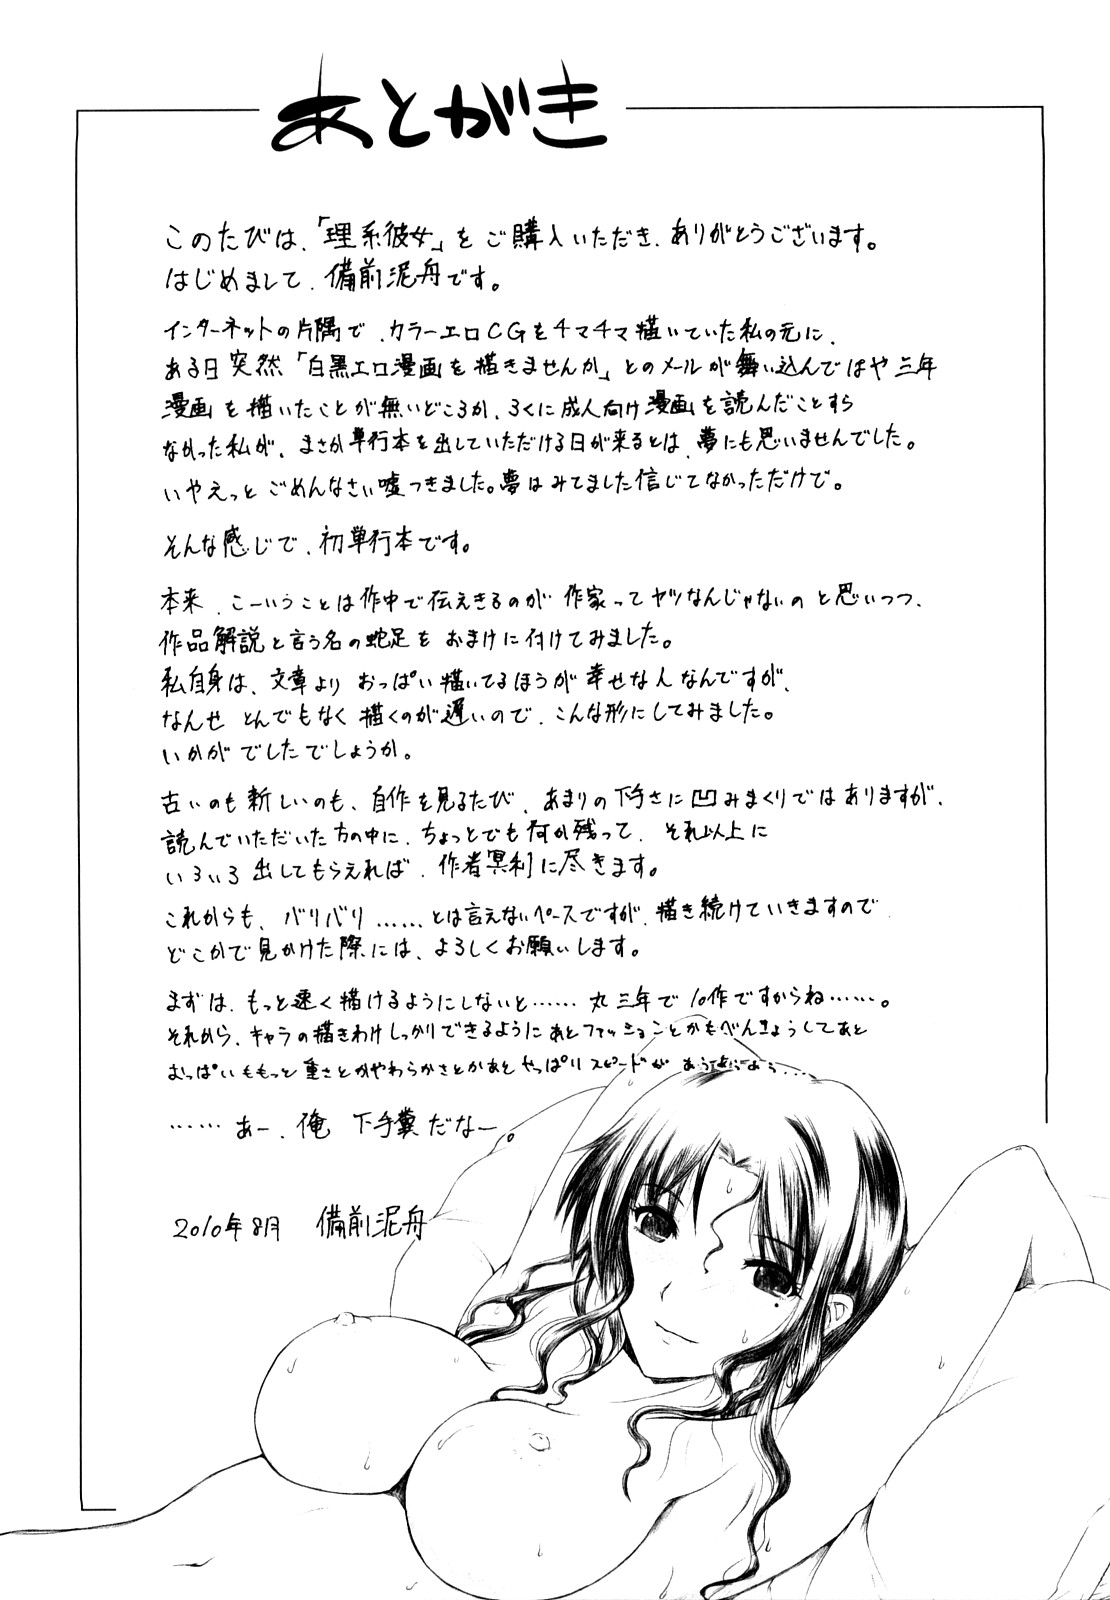 あとがき
このたびは、「理系彼女」をご購入いただき、ありがとうございます。
はじめまして、備前泥舟です。
インターネットの片隅で、カラーエロCGをチマチマ描いていた私の元に、
ある日突然「白黒エロ漫画を描きませんか」とのメールが舞い込んではや三年
漫画を描いたことが無いどころか、ろくに成人向け漫画を読んだことすら
なかった私が、まさか単行本を出していただける日が来るとは、夢にも思いませんでした。
いやえっと ごめんなさい嘘つきました。夢はみてました信じてなかっただけで。
そんな感じで、初単行本です。
本来、こーいうことは作中で伝えきるのが 作家ってヤツなんじゃないの と思いつつ、
作品解説と言う名の蛇足を おまけに付けてみました。
私自身は、文章より おっぱい描いてるほうが 幸せな人 なんですが、
なんせ とんでもなく 描くのが遅いので、こんな形にしてみました。
いかがでしたでしょうか。
古いのも新しいのも、自作を見るたび、あまりの下手さに凹みまくりではありますが、
読んでいただいた方の中に、ちょっとでも何か残って、それ以上に
いろいろ出してもらえれば、作者冥利に尽きます。
これからも、バリバリ……とは言えないペースですが、描き続けていきますので、
どこかで見かけた際には、よろしくお願いします。
まずは、もっと速く描けるようにしないと……丸三年で10作ですからね……。
それから、キャラの描きわけしっかりできるようにあとファッションとかもべんきょうしてあと
おっぱいももっと重さとかやわらかさとかあと やっぱりスピードが あうあうあう...
……あー、俺 下手糞だなー。
2010年8月 備前泥舟